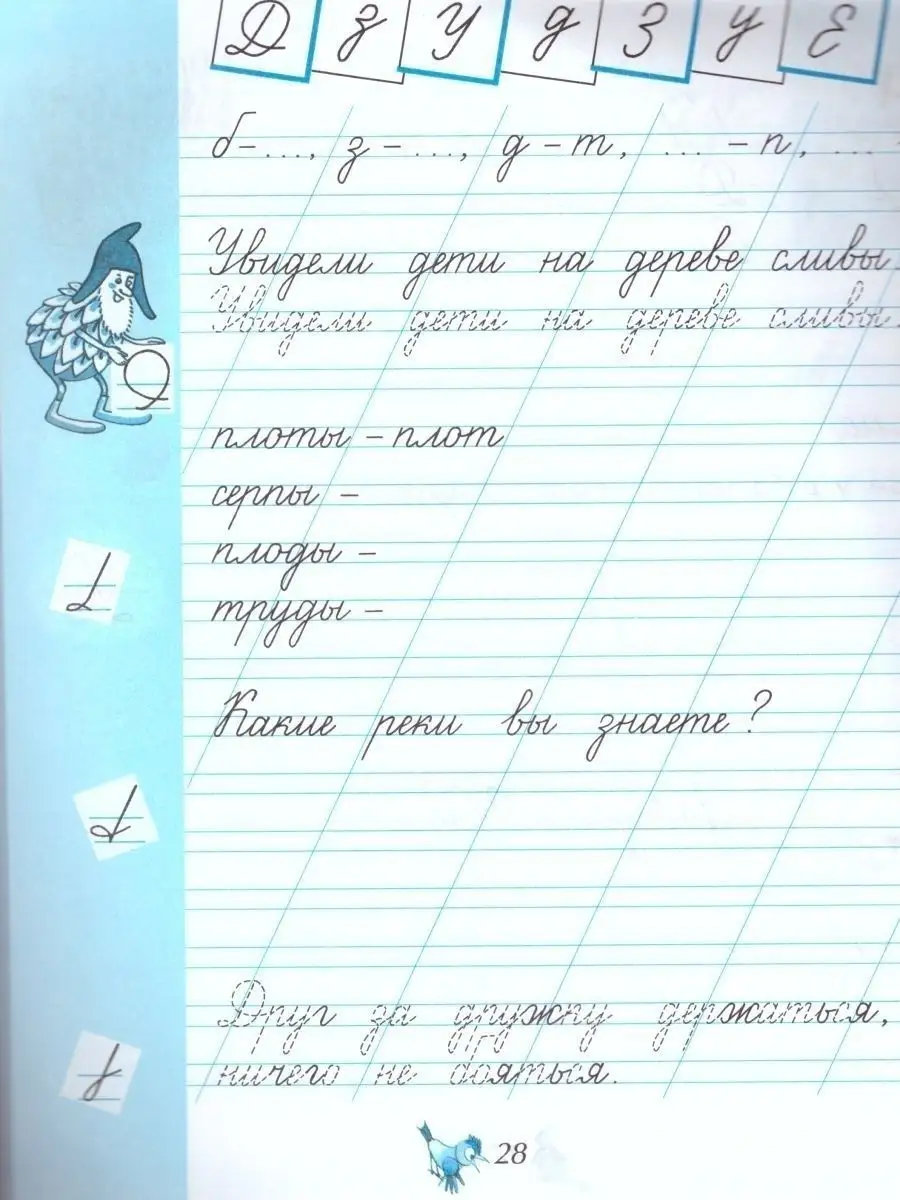 Д з У д З у Е
б – ..., з – ..., д – т, ... – п, ... -
Увидели дети на дереве сливы.
Увидели дети на дереве сливы.
плоты – плот
серпы –
плоды –
труды –
Какие реки вы знаете?
Друг за дружку держаться,
ничего не бояться.
28